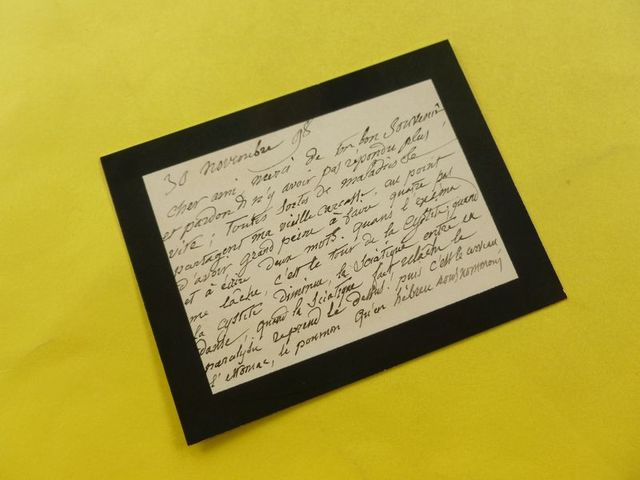 30 novembre 98
Cher ami, merci de ton bon souvenir
et pardon d n'y avoir pas répondu plus
vite; toutes sortes de maladies se
partagent ma vieille carcasse, au point
d'avoir grand peine à faire quatre pas
et à lire deux mots. quand l'exéma
me lache, c'est le tour de la Cystite, quand
la cystite diminue, la Sciatique entre en
danse; quand la Sciatique fait relache le
paralysie reprend le dessus. puis c'est le
l'estomac, le poumon qu'en hébreu nous nommons